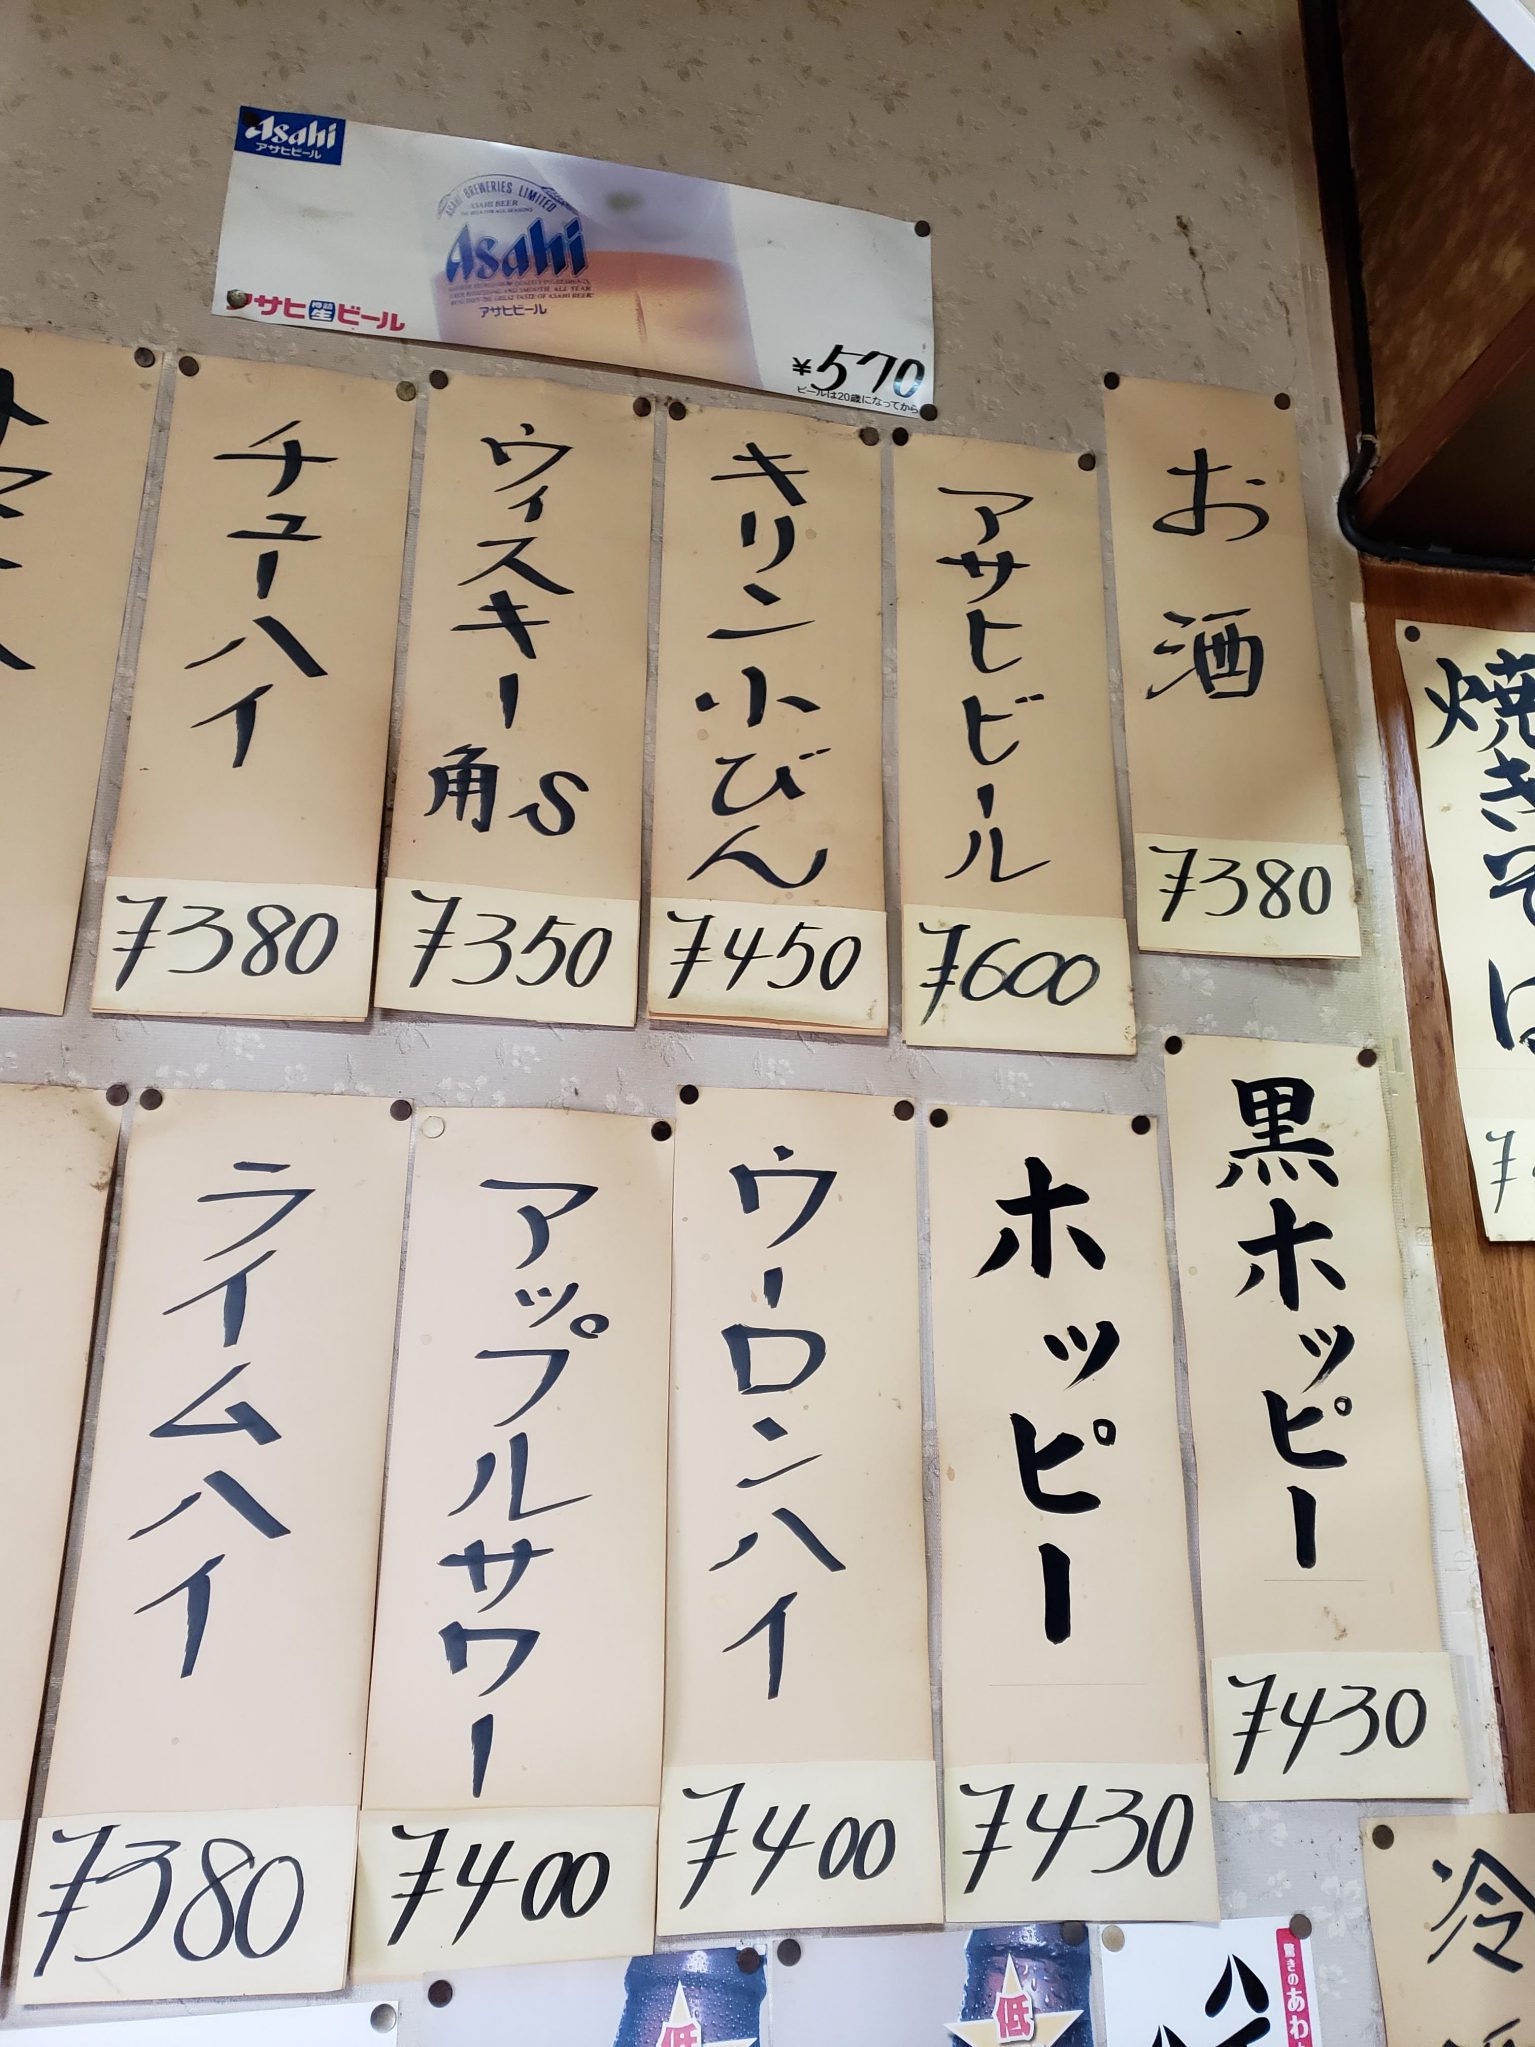 Asahi
アサヒビール
ASAHI BREWERIES LIMITED
ASAHI BEER
Asahi
アサヒビール
アサヒ樽詰生ビール
¥570
ビールは20歳になってから
お酒
¥380
アサヒビール
¥600
キリン小びん
¥450
ウィスキー
角S
¥350
チューハイ
¥380
焼きそば
黒ホッピー
¥430
ホッピー
¥430
ウーロンハイ
¥400
アップルサワー
¥400
ライムハイ
¥380
冷
低
低
驚きのあわ